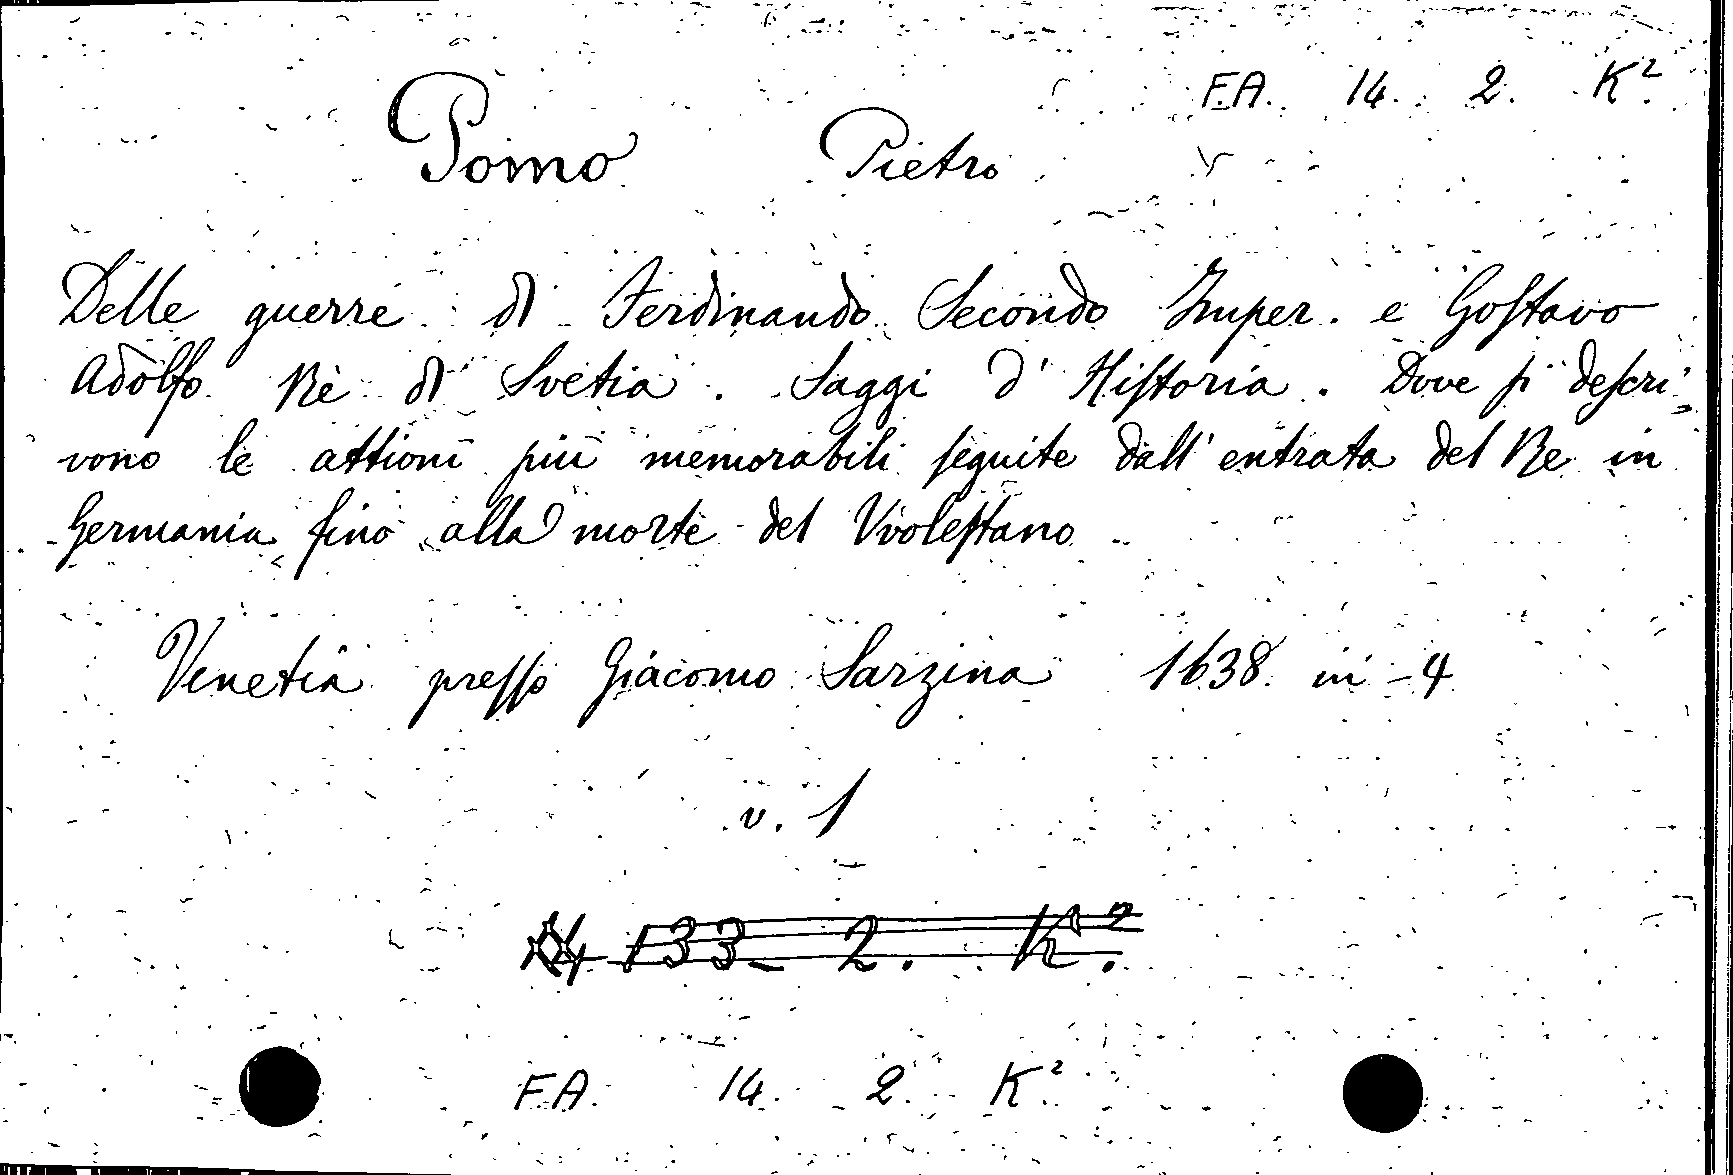 F.A. 14. 2. K².
Pomo Pietro
Delle guerre di Ferdinando Secondo Imper. e Goſtavo
Adolfo Rè di Svetia. Saggi d'Hiſtoria. Dove ſi deſcri=
vono le attioni più memorabili ſeguite dall'entrata del Re in
Germania fino alla morte del Vvoleſtano
Venetia preſſo Giacomo Sarzina 1638. in-4
v. 1
133_ 2. K².
F.A. 14. 2. K².